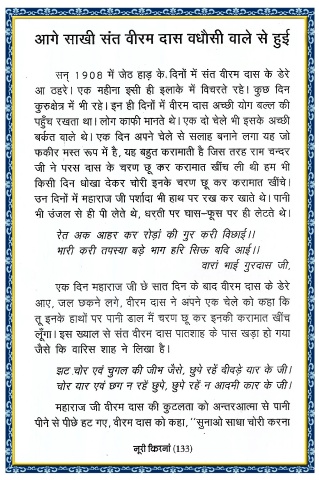 आगे साखी संत वीरम दास वधौसी वाले से हुई
सन् 1908 में जेठ हाड़ के दिनों में संत वीरम दास के डेरे
आ ठहरे। एक महीना इसी ही इलाके में विचरते रहे। कुछ दिन
कुरुक्षेत्र में भी रहे। इन ही दिनों में वीरम दास अच्छी योग बल्ल की
पहुँच रखता था। लोग काफी मानते थे। एक दो चेले भी इसके अच्छी
बर्कत वाले थे। एक दिन अपने चेले से सलाह बनाने लगा यह जो
फकीर मस्त रूप में है, यह बहुत करामाती है जिस तरह राम चन्दर
जी ने परस दास के चरण छू कर करामात खींच ली थी हम भी
किसी दिन धोखा देकर चोरी इनके चरण छू कर करामात खींचे।
उन दिनों में महाराज जी पर्शादा भी हाथ पर रख कर खाते थे। पानी
भी उंजल से ही पी लेते थे, धरती पर घास–फूस पर ही लेटते थे।
रेत अक आहर कर रोड़ां की गुर करी विछाई।।
भारी करी तपस्या बड़े भाग हरि सिऊ बदि आई।।
वारां भाई गुरदास जी,
एक दिन महाराज जी छे सात दिन के बाद वीरम दास के डेरे
आए, जल छकने लगे, वीरम दास ने अपने एक चेले को कहा कि
तू इनके हाथों पर पानी डाल मैं चरण छू कर इनकी करामात खींच
लूँगा। इस ख्याल से संत वीरम दास पातशाह के पास खड़ा हो गया
जैसे कि वारिस शाह ने लिखा है।
झट चोर एवं चुगल की जीभ जैसे, छुपे रहें वीवड़े यार के जी।
चोर यार एवं छग न रहें छुपे, छुपे रहें न आदमी कार के जी।
महाराज जी वीरम दास की कुटलता को अन्तरआत्मा से पानी
पीने से पीछे हट गए, वीरम दास को कहा, “सुनाओ साधा चोरी करना
नूरी किरनां (133)